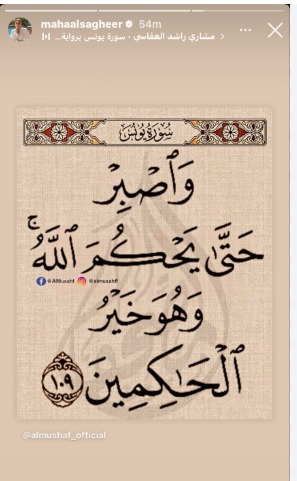 mahaalsagheer 54m
مشاري راشد العفاسي · سورة يونس برواية...
سُورَةُ يُونُسَ
وَٱصْبِرْ
حَتَّىٰ يَحْكُمَ ٱللَّهُۚ
@AlMusahf @almusahff
وَهُوَ خَيْرُ
ٱلْحَٰكِمِينَ ١٠٩
@almushaf_official